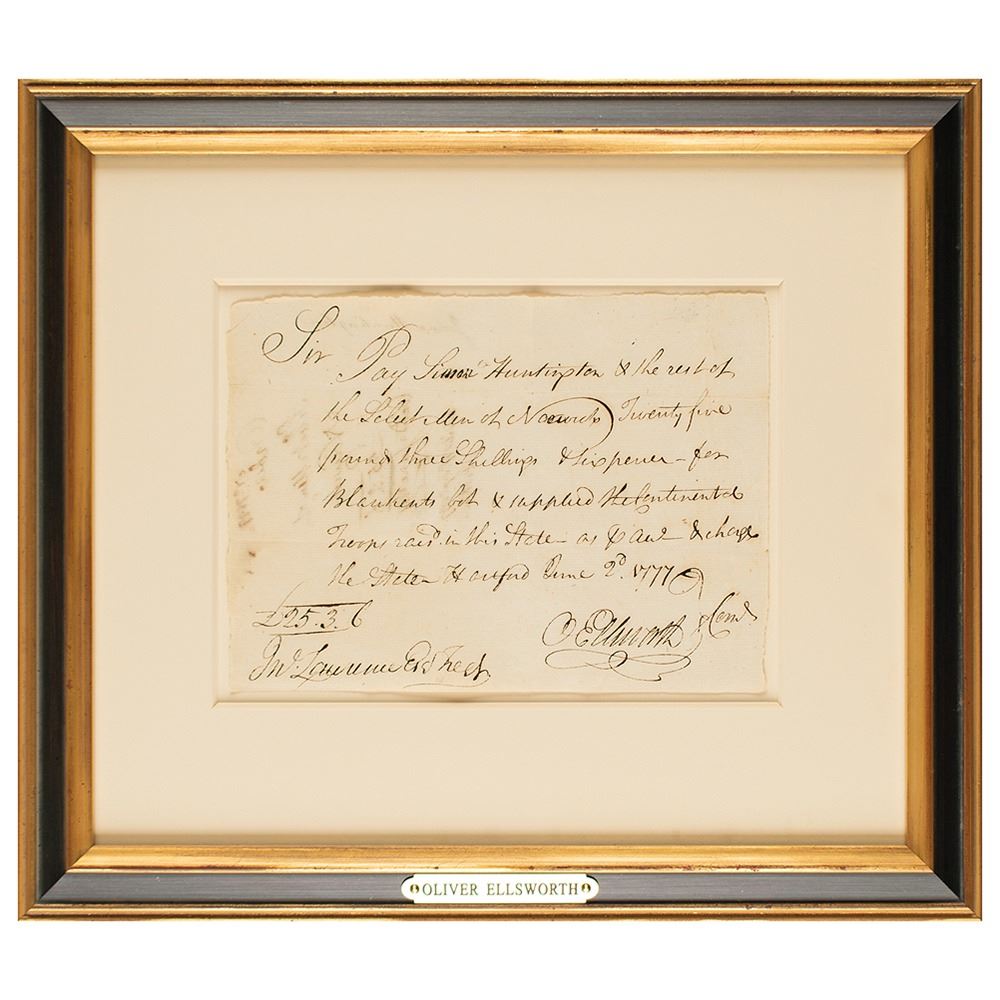 Sir
Pay Simon Huntington & the rest of
the Select Men of Norwich Twenty five
pound three Shillings & sixpence - for
Blankents bot & supplied the Continental
Troops raisd. in this State - as pr. acct & charge
the State - Harford June 2d. 1777
£25.3.6
OEllsworth Comtt.
Jno. Lawrence Esqr Treasr
OLIVER ELLSWORTH